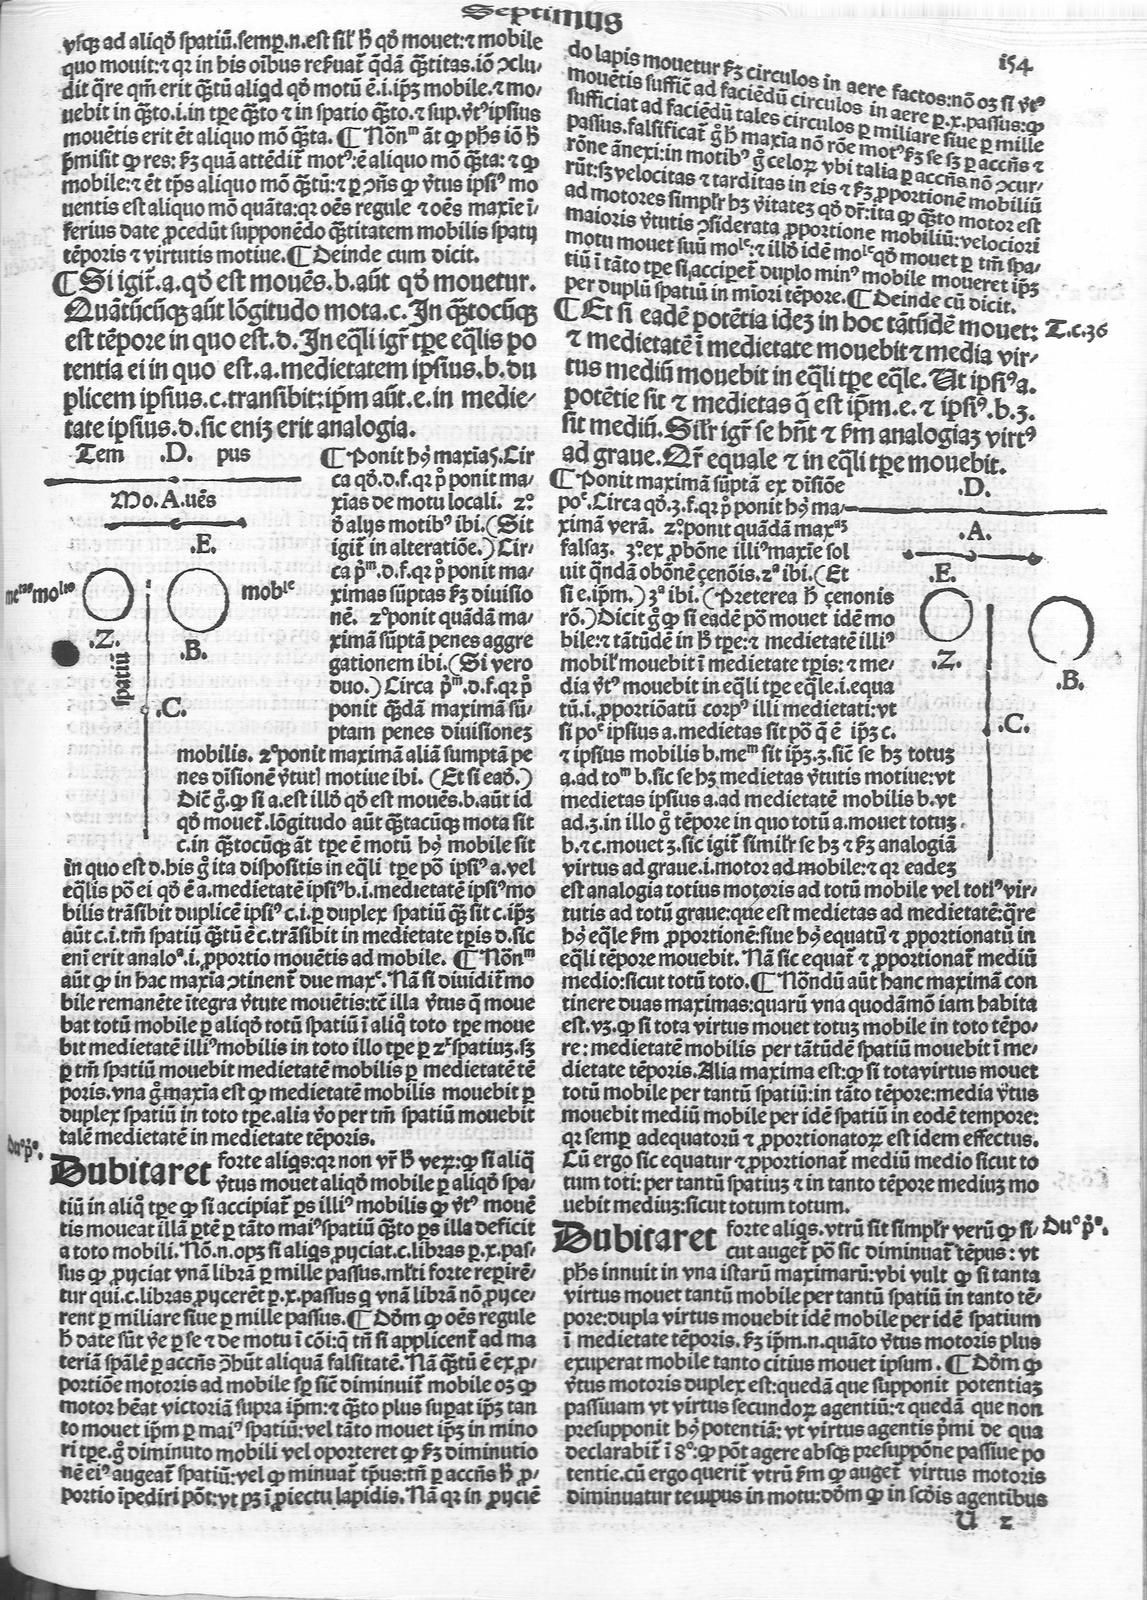 Septimus
154
vsqȝ ad aliqđ spatiū.semꝑ.n.est sil' h̄ qđ mouet:⁊ mobile
quo mouit:⁊ qꝛ in his oībus reꝑuat̃ q̃dā q̃titas.iō ↄclu-
dit q̃re qm̃ erit q̃tū aliqd qđ motū ē.i.ip̄ȝ mobile.⁊ mo-
uebit in q̃to.i.in tꝑe q̃to ⁊ in spatio q̃to.⁊ sup.v̄tꝰ ipsius
mouētis erit ēt aliquo mō q̃ta. ¶ Nōnᵐ āt ꝙ ph̄s iō h̄
p̄misit ꝙ res: ẜm quā attēdit̃ motꝰ:ē aliquo mō q̃ta: ⁊ ꝙ
mobile:⁊ ēt tp̄s aliquo mō q̃tū:⁊ ꝑ ↄñs ꝙ v̄tus ipsiꝰ mo
uentis est aliquo mō quāta:qꝛ oēs regule ⁊ oēs maxīe ī-
ferius date ꝓcedūt supponēdo q̃titatem mobilis spatij
tēporis ⁊ virtutis motiue.¶Deinde cum dicit.
¶Si igit̃.a.qđ est mouēs.b.aūt qđ mouetur.
Quātūcūqȝ aūt lōgitudo mota.c.In q̃tocūqȝ
est tēpore in quo est.d.In eq̄li igr̃ tꝑe eq̄lis po
tentia ei in quo est.a.medietatem ipsius.b.du
plicem ipsius.c.transibit:ip̄m aūt.e.in medie-
tate ipsius.d.sic eniȝ erit analogia.
Tem .D. pus
Mo.A.uēs
.E.
moblᵉ
.Z.
.B.
spatiū
.C.
¶Ponit hꝰ maxiaȝ.Cir
ca qđ.d.f.qꝛ p̄ ponit ma-
xīas de motu locali. 2º.
đ alijs motibꝰ ibi.(Sit
igit̃ in alteratiōe.) Cir-
ca p̄ᵐ.d.f.qꝛ p̄ ponit ma-
ximas sūptas ẜm diuisio
nē. 2ºponit quādā ma-
ximā sūptā penes aggre
gationem ibi.(Si vero
duo.) Circa p̄ᵐ.d.f.qꝛ p̄
ponit q̄dā maximā sū-
ptam penes diuisioneȝ
mobilis. 2ºponit maximā aliā sumptā pe
nes diſionē v̄tut] motiue ibi. (Et si eađ.)
Dic̄ g̊.ꝙ si a.est illđ qđ est mouēs.b.aūt id
qđ mouet̃.lōgitudo aūt q̃tacūqȝ mota sit
c.in q̃tocūqȝ āt tꝑe ē motū hꝰ mobile sit
in quo est d.his g̊ ita dispositis in eq̄li tꝑe pō ipsiꝰ a.vel
eq̄lis pō ei qđ ē a.medietatē ipsiꝰ b.i.medietatē ipsiꝰ mo
bilis trāsibit duplicē ipsiꝰ c.i.ꝑ duplex spatiū q̃ sit c.ip̄ȝ
aūt c.i.tm̄ spatiū q̃tū ē c.trāsibit in medietate tꝑis d.sic
eni erit analoᵃ.i.ꝓportio mouētis ad mobile. ¶ Nōnᵐ
aūt ꝙ in hac maxia ↄtinent̃ due maxᵉ. Nā si diuidit̃ mo
bile remanēte ītegra v̄tute mouētis:tc̄ illa v̄tus q̄ moue
bat totū mobile ꝑ aliqđ totū spatiū ī aliq̊ toto tꝑe moue
bit medietatē illiꝰ mobilis in toto illo tꝑe ꝑ 2ˣ spatiuȝ.sȝ
ꝑ tm̄ spatiū mouebit medietatē mobilis ꝑ medietatē tē
poris.vna g̊ maxīa est ꝙ medietatē mobilis mouebit ꝑ
duplex spatiū in toto tꝑe.alia v̊o per tm̄ spatiū mouebit
talē medietatē in medietate tēporis.
Duº.pº.
Dubitaret forte aliqs:qꝛ non vr̄ h̄ veꝝ:ꝙ si aliq̄
v̄tus mouet aliqđ mobile ꝑ aliqđ spa-
tiū in aliq̊ tꝑe ꝙ si accipiat̃ ꝑs illiꝰ mobilis ꝙ v̄tꝰ mouē
tis moueat illā ꝑtē ꝑ tāto maiꝰ spatiū q̃to ꝑs illa deficit
a toto mobili. Nō.n.opȝ si aliqs ꝓijciat.c.libras ꝑ.x.pas-
sus ꝙ ꝓijciat vnā librā ꝑ mille passus.ml̄ti forte reꝑirē-
tur qui.c.libras ꝓijcerēt ꝑ.x.passus q̄ vnā librā nō ꝓijce-
rent ꝑ miliare siue ꝑ mille passus.¶Dōm ꝙ oēs regule
h̄ date sūt v̄e ꝑ se ⁊ de motu ī cōi:q̄ tn̄ si applicent̃ ad ma
teriā sp̄alē ꝑ accn̄s ↄh̄ūt aliquā falsitatē. Nā q̃tū ē ex ꝓ-
portiōe motoris ad mobile sꝑ sic̄ diminuit̃ mobile oȝ ꝙ
motor hēat victoriā supra ip̄m:⁊ q̃to plus supat ip̄ȝ tan
to mouet ip̄m ꝑ maiꝰ spatiū:vel tāto mouet ip̄ȝ in mino
ri tꝑe.g̊ diminuto mobili vel oporteret ꝙ ẜm diminutio
nē eiꝰ augeat̃ spatiū:vel ꝙ minuat̃ tp̄us:tn̄ ꝑ accn̄s h̄ ꝓ-
portio īpediri pōt:vt pȝ ī ꝓiectu lapidis. Nā qꝛ in ꝓijciē
do lapis mouetur ẜm circulos in aere factos:nō oȝ si v̄tꝰ
mouētis suffic̄ ad faciēdū circulos in aere ꝑ.x.passus:ꝙ
sufficiat ad faciēdū tales circulos ꝑ miliare siue ꝑ mille
passus.falsificat̃ g̊ h̄ maxīa nō rōe motꝰ ẜm se sȝ ꝑ accn̄s ⁊
rōne ānexi:in motibꝰ g̊ celoꝝ vbi talia ꝑ accn̄s nō ↄcur-
rūt:sȝ velocitas ⁊ tarditas in eis ē ẜm ꝓportionē mobiliū
ad motores simpl̄r hȝ v̄itateȝ qđ dr̄:ita ꝙ q̃to motor est
maioris v̄tutis ↄsiderata ꝓportione mobiliū:velociori
motu mouet suū moˡᵉ:⁊ illđ idē moˡᵉ qđ mouet ꝑ tm̄ spa-
tiū ī tāto tꝑe si accipet̃ duplo minꝰ mobile moueret ip̄ȝ
per duplū spatiū in mīori tēpore.¶Deinde cū dicit.
¶Et si eadē potētia ideȝ in hoc tātūdē mouet:
T.c.36
⁊ medietatē ī medietate mouebit ⁊ media vir-
tus mediū mouebit in eq̄li tꝑe eq̄le. Ut ipsiꝰ a.
potētie sit ⁊ medietas q̄ est ip̄m.e.⁊ ipsiꝰ.b.ȝ.
sit mediū. Silr̄ igr̃ se hn̄t ⁊ ẜm analogiaȝ virtꝰ
ad graue. Qr̄ equale ⁊ in eq̄li tꝑe mouebit.
¶Ponit maximā sūptā ex diſiōe
poᵉ.Circa qđ.ȝ.f.qꝛ p̄ ponit hꝰ ma-
ximā verā. 2º.ponit quādā maxᵃȝ
falsaȝ. 3º.ex ꝓbōne illiꝰ maxīe sol
uit q̄ndā obōnē çenōis.2ᵃ ibi.(Et
si e.ip̄m.) 3ᵃ ibi.(Preterea h̄ çenonis
rō.) Dicit g̊ ꝙ si eadē pō mouet idē mo
bile:⁊ tātūdē in h̄ tꝑe:⁊ medietatē illiꝰ
mobil̄ mouebit ī medietate tꝑis:⁊ me-
dia v̄tꝰ mouebit in eq̄li tꝑe eq̄le.i.equa
tū.i.ꝓportiōatū corpꝰ illi medietati:vt
si poᵉ ipsius a.medietas sit pō q̄ ē ip̄ȝ c.
⁊ ipsius mobilis b.meᵐ sit ip̄ȝ.ȝ.sic̄ se hȝ totuȝ
a.ad toᵐ b.sic se hȝ medietas v̄tutis motiue:vt
medietas ipsius a.ad medietatē mobilis b.vt
ad.ȝ.in illo g̊ tēpore in quo totū a.mouet totuȝ
b.⁊ c.mouet ȝ.sic igit̃ simil̄r se hȝ ⁊ ẜm analogiā
virtus ad graue.i.motor ad mobile:⁊ qꝛ eadeȝ
.D.
.A.
.E.
.Z.
.B.
.C.
est analogia totius motoris ad totū mobile vel totiꝰ vir-
tutis ad totū graue:que est medietas ad medietatē:q̃re
hꝰ eq̄le ẜm ꝓportionē:siue hꝰ equatū ⁊ ꝓportionatū in
eq̄li tēpore mouebit. Nā sic equat̃ ⁊ ꝓportionat̃ mediū
medio:sicut totū toto.¶Nōndū aūt hanc maximā con
tinere duas maximas:quarū vna quodāmō iam habita
est.vȝ.ꝙ si tota virtus mouet totuȝ mobile in toto tēpo-
re: medietatē mobilis per tātūdē spatiū mouebit ī me-
dietate tēporis. Alia maxima est:ꝙ si tota virtus mouet
totū mobile per tantū spatiū:in tāto tēpore:media v̄tus
mouebit mediū mobile per idē spatiū in eodē tempore:
qꝛ semꝑ adequatorū ⁊ ꝓportionatoꝝ est idem effectus.
Cū ergo sic equatur ⁊ ꝓportionat̃ mediū medio sicut to
tum toti:per tantū spatiuȝ ⁊ in tanto tēpore mediuȝ mo
uebit mediuȝ:sicut totum totum.
Dubitaret forte aliqs.vtrū sit simpl̄r verū ꝙ si-
Duº pº.
cut auget̃ pō sic diminuat̃ tēpus: vt
ph̄s innuit in vna istarū maximarū:vbi vult ꝙ si tanta
virtus mouet tantū mobile per tantū spatiū in tanto tē-
pore:dupla virtus mouebit idē mobile per idē spatium
ī medietate tēporis. ẜm ip̄m.n.quāto v̄tus motoris plus
exuperat mobile tanto citius mouet ipsum. ¶ Dōm ꝙ
v̄tus motoris duplex est:quedā que supponit potentiaȝ
passiuam vt virtus secundoꝝ agentiū:⁊ quedā que non
presupponit hꝰ potentiā: vt virtus agentis p̄mi de qua
declarabit̃ ī 8º:ꝙ pōt agere absqȝ presuppōne passiue po
tentie.cū ergo querit̃ vtrū ẜm ꝙ auget̃ virtus motoris
diminuatur tempus in motu:dōm ꝙ in scđis agentibus
U 2